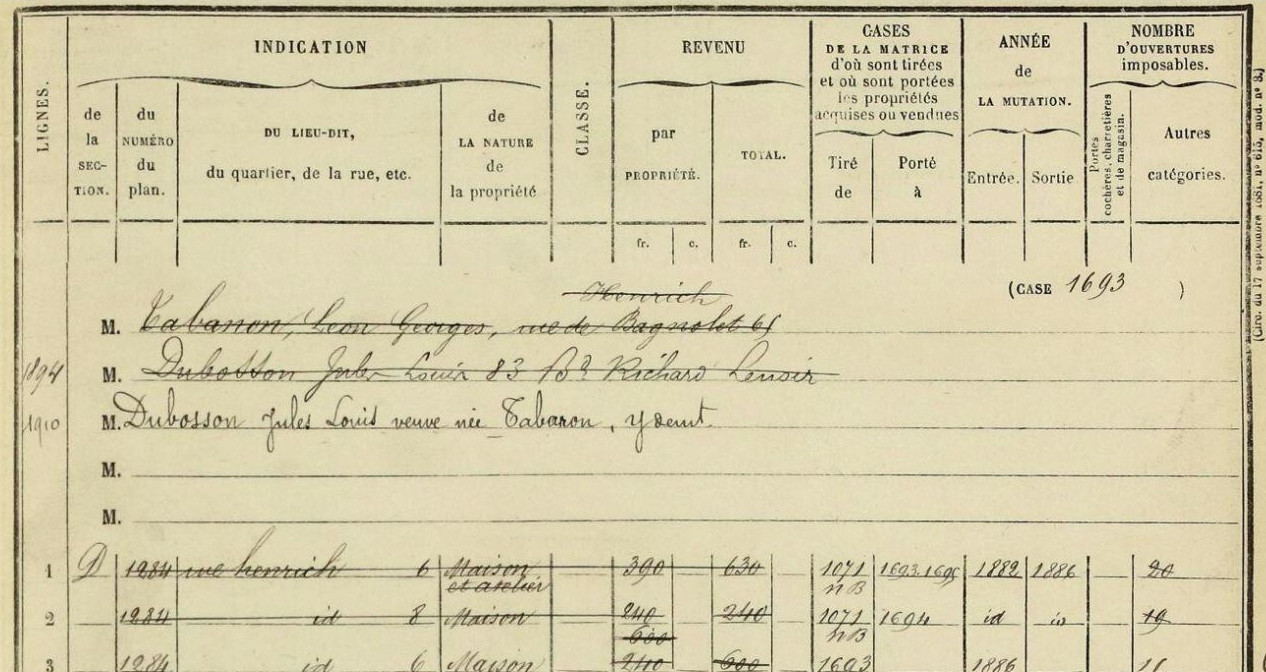 INDICATION
REVENU
CASES
DE LA MATRICE
d'où sont tirées
et où sont portées
les propriétés
acquises ou vendues
ANNÉE
de
LA MUTATION.
NOMBRE
D'OUVERTURES
imposables.
LIGNES.
de
la
SEC-
TION.
du
NUMÉRO
du
plan.
DU LIEU-DIT,
du quartier, de la rue, etc.
de
LA NATURE
de
la propriété
CLASSE.
par
PROPRIÉTÉ.
TOTAL.
Tiré
de
Porté
à
Entrée.
Sortie
Portes
cochères, charretières
et de magasin.
Autres
catégories.
fr. c. fr. c.
(Circ. du 17 septembre 1881, n° 615, mod. n° 8.)
(CASE 1693 )
Henrich
M. Tabanon, Leon Georges, rue de Bagnolet 61
1894 M. Dubosson Jules Louis 83 Bd Richard Lenoir
1910 M. Dubosson Jules Louis veuve née Tabaron, y demt.
M.
M.
1 D 1284 rue henrich 6 Maison 390 630 1071 1693.1695 1882 1886 20
et atelier nB
2 1284 id 8 Maison 240 240 1071 1694 id id 19
600 nB
3 1284 id 6 Maison 240 600 1693 1886